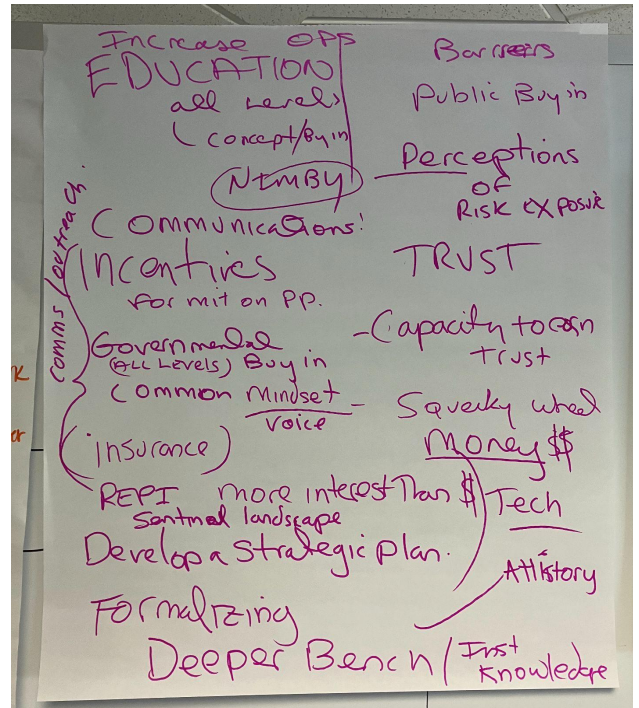 Increase opps
EDUCATION
all Levels
concept/Buy in
NIMBY
Communications!
Incentives
for mit on PP.
Governmental
(ALL LEVELS) Buy in
Common Mindset
Voice
(insurance)
comms/outreach.
REPI more interest Than $
Sentinel landscape
Develop a Strategic plan.
Formalizing
Deeper Bench / Inst
Knowledge
Barriers
Public Buy in
Perceptions
of
Risk exposure
TRUST
- Capacity to
Trust
Squeaky wheel
Money $$
Tech
History
K
er